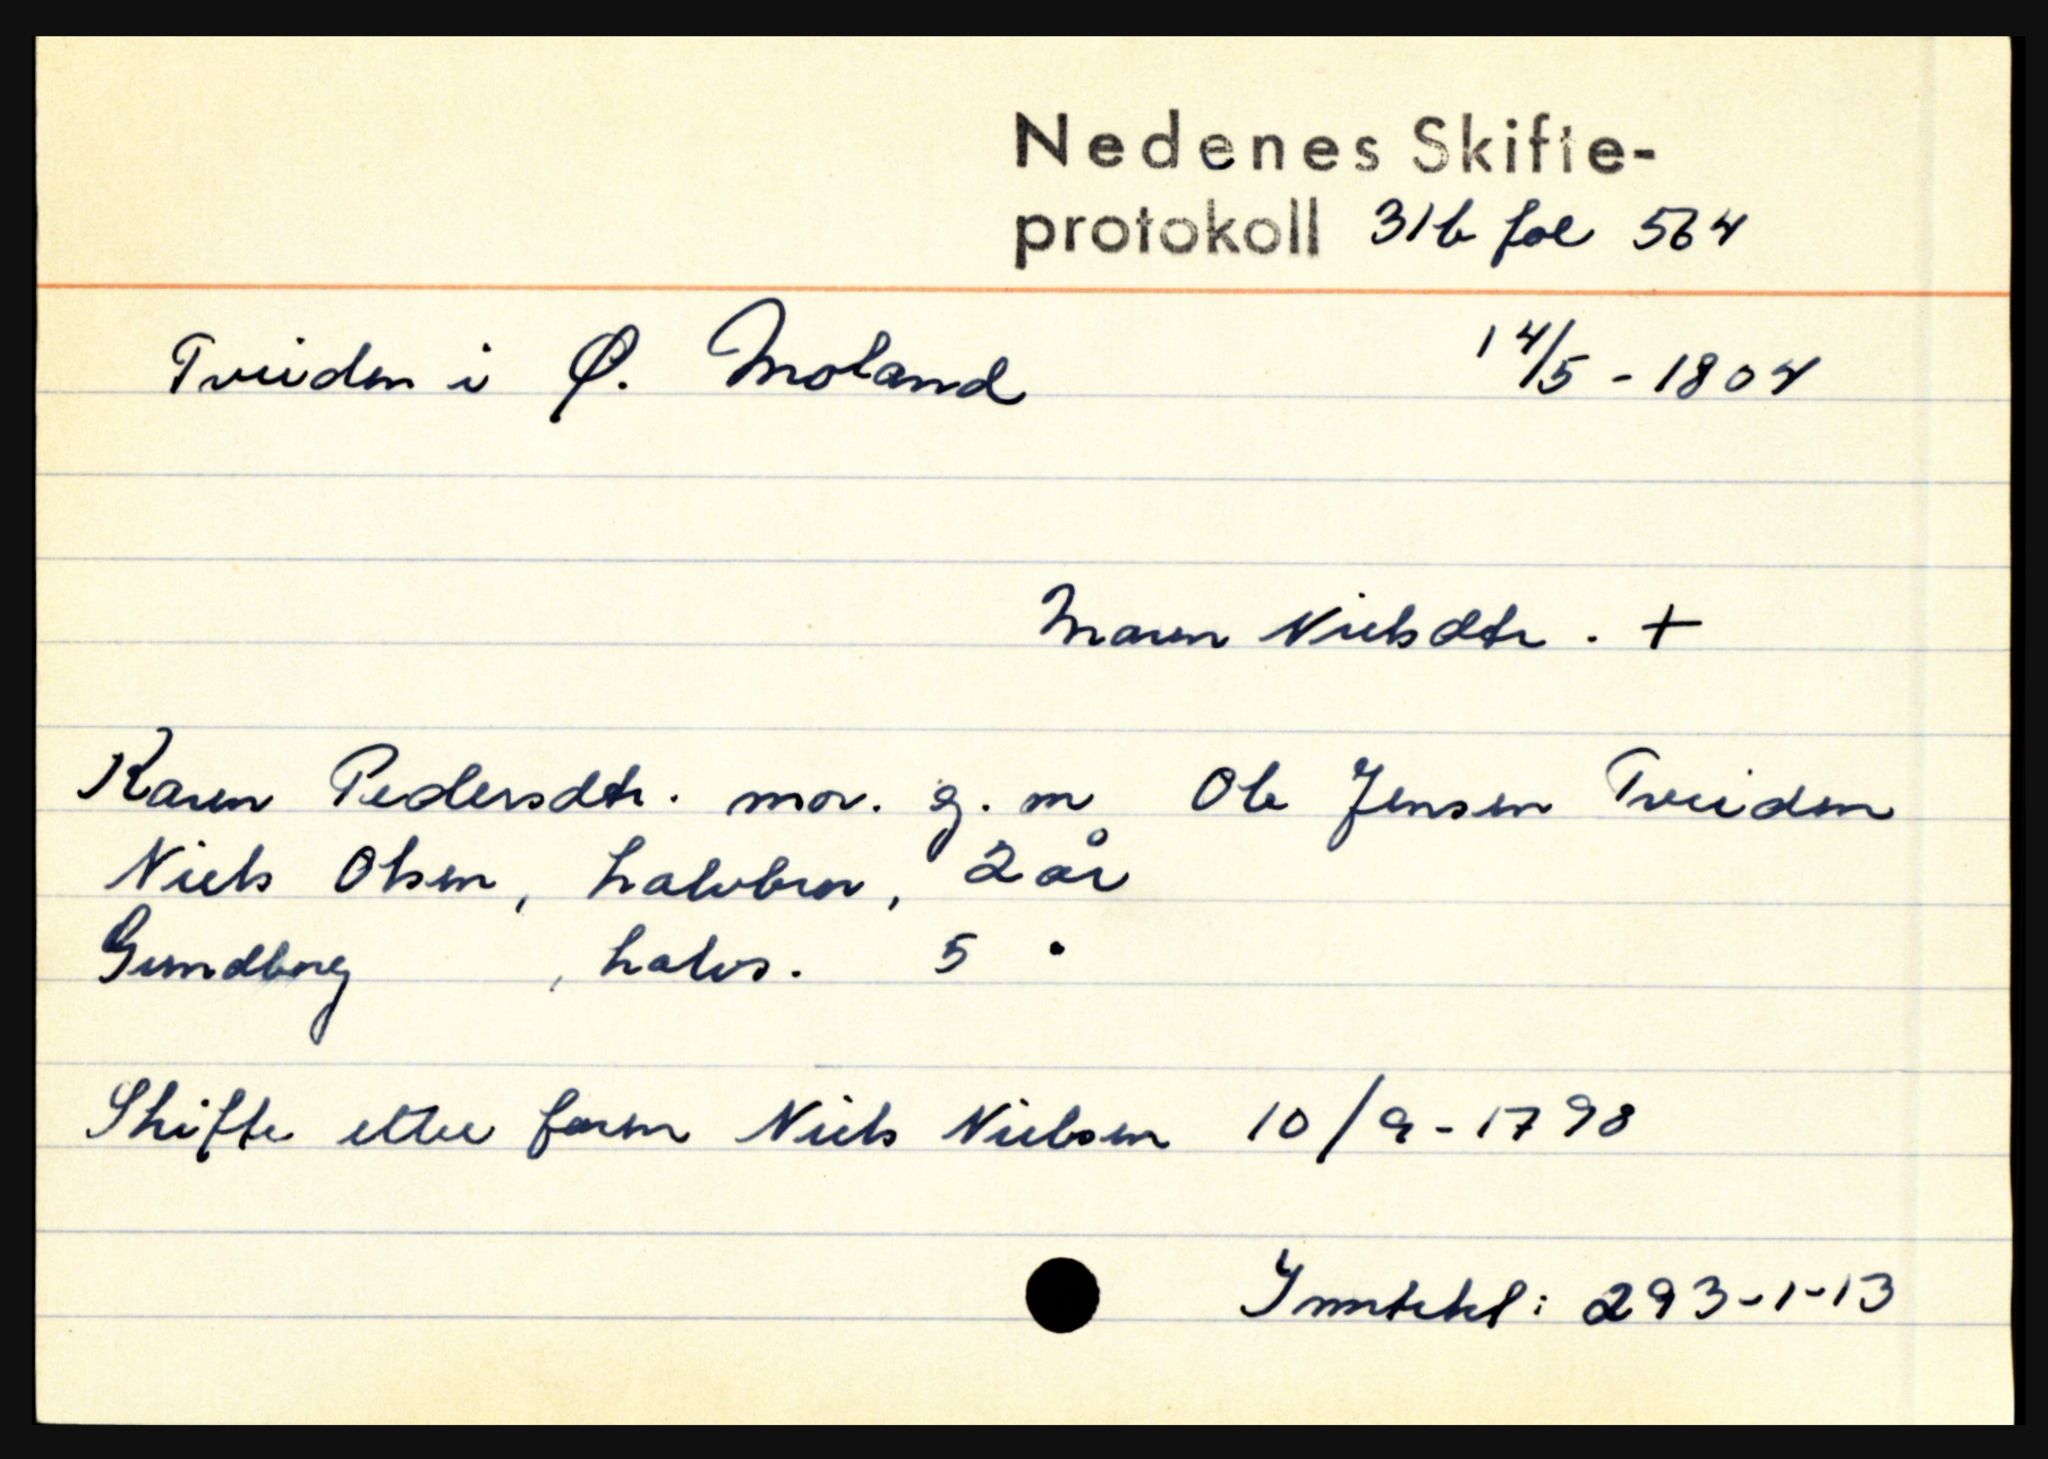 Nedenes Skifte-
protokoll 31b fol 564
Tveiden i Ø. Moland 14/5 - 1804
Maren Nielsdtr. +
Karen Pedersdtr. mor. g. m Ole Jensen Tveiden
Niels Olsen, halvbror, 2 år
Gundborg , halvs. 5 "
Skifte etter faren Niels Nielsen 10/9 - 1798
Inntekt: 293-1-13